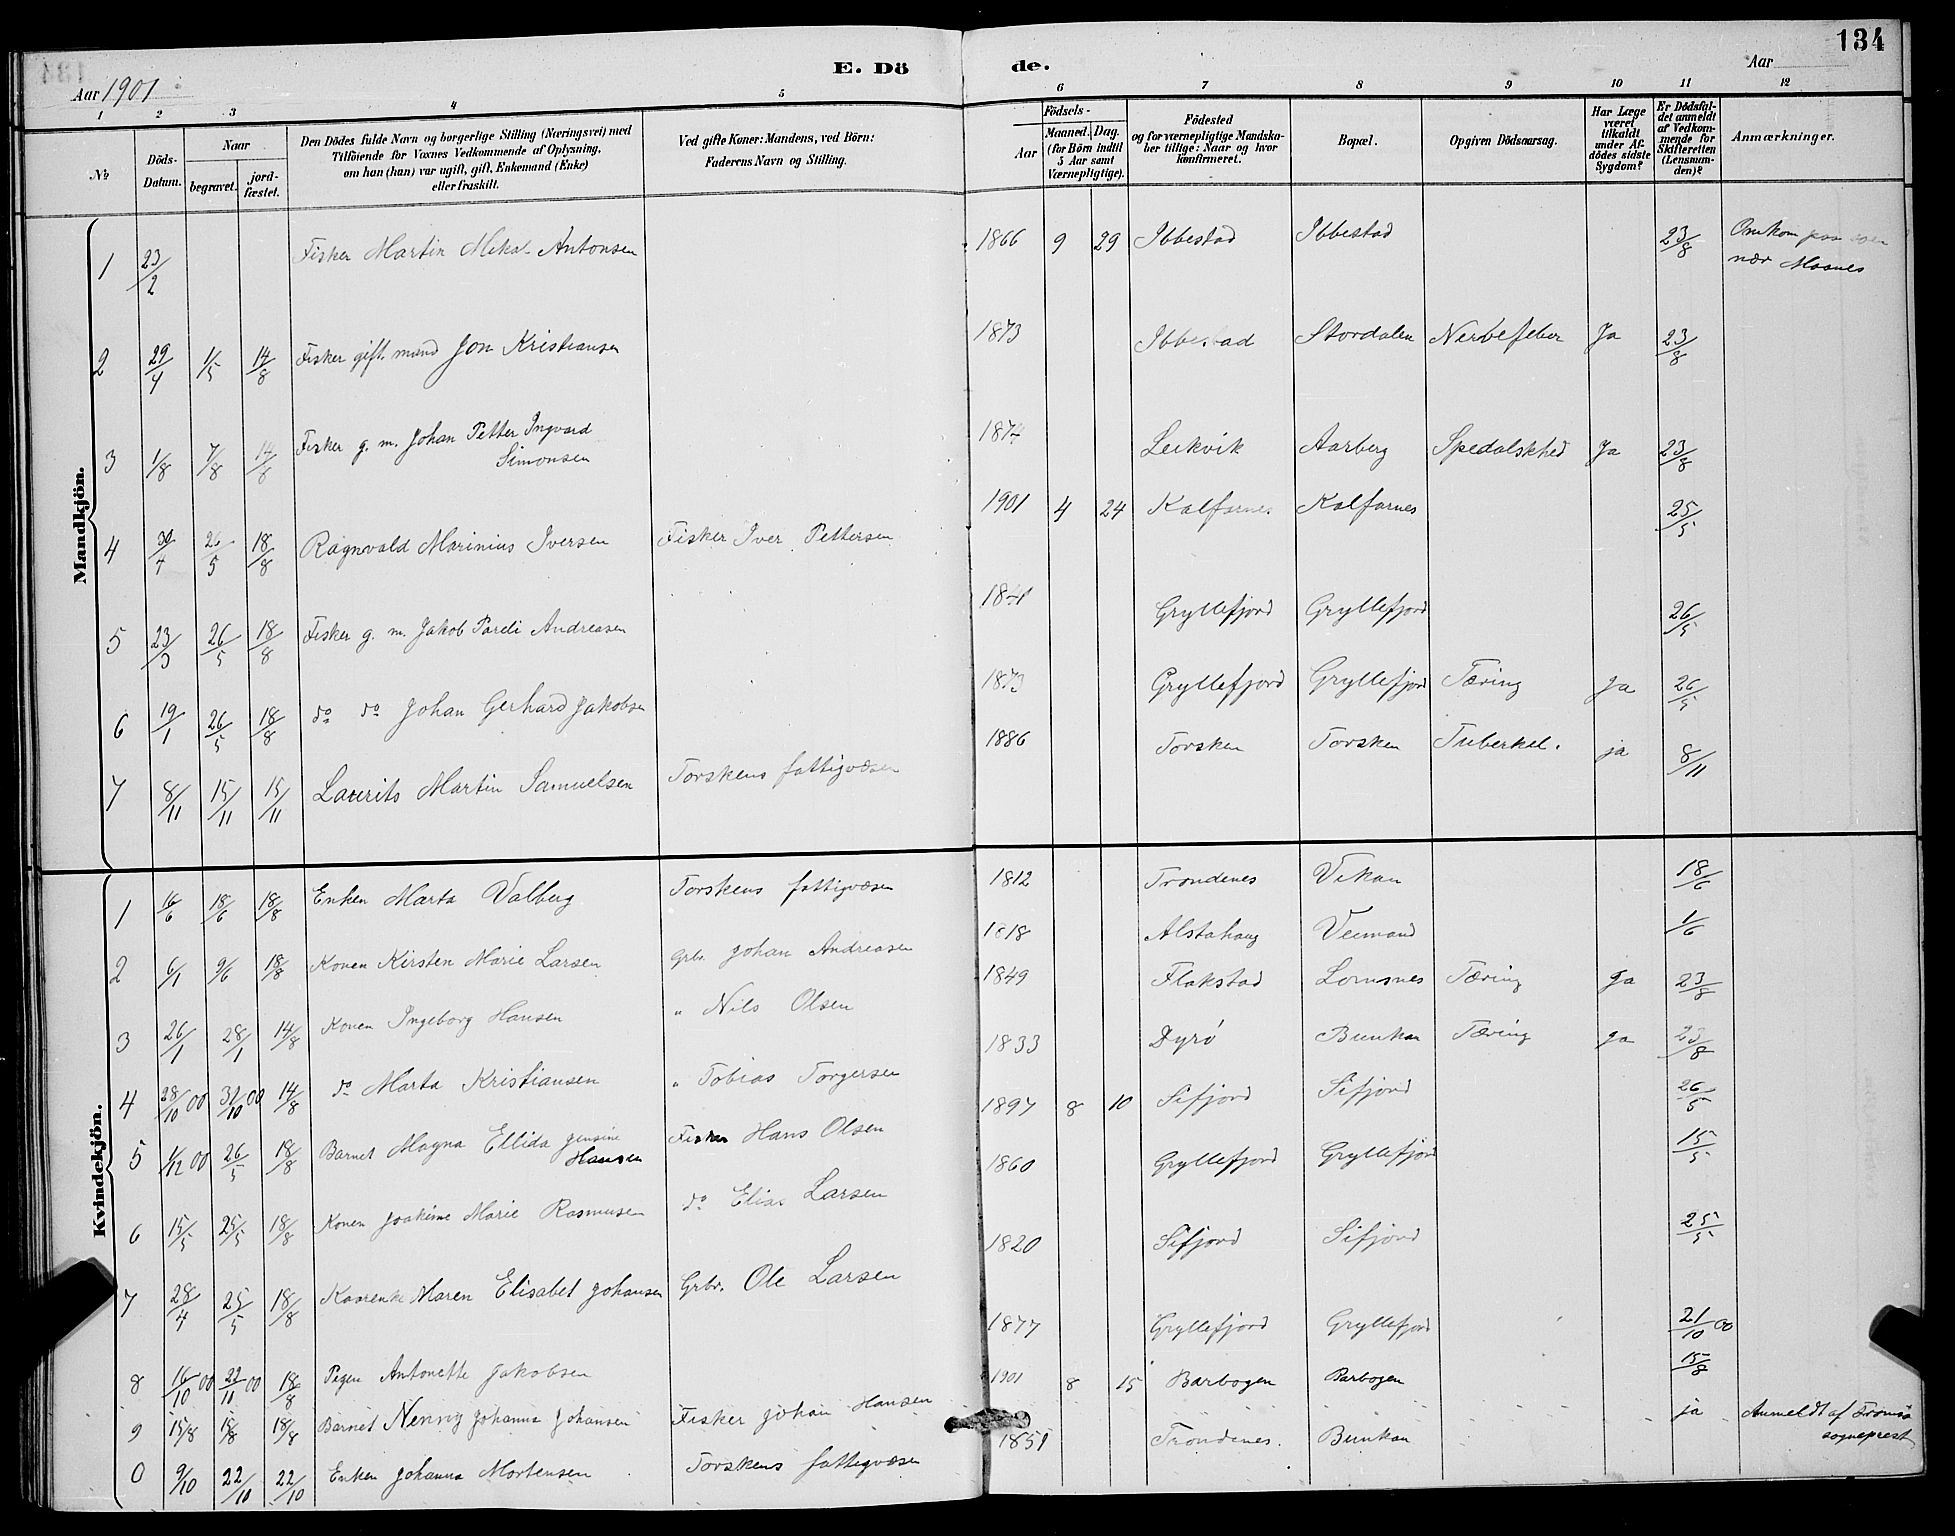 134
E. Dö de.
Aar 1901
Aar
1 2 3 4 5 6 7 8 9 10 11 12
№
Döds-Datum.
Naar
begravet. jord-fæstet.
Den Dödes fulde Navn og borgerlige Stilling (Næringsvei) med
Tilföiende for Voxnes Vedkommende af Oplysning,
om han (hun) var ugift, gift, Enkemand (Enke)
eller fraskilt.
Ved gifte Koner: Mandens, ved Börn:
Faderens Navn og Stilling.
Födsels-
Aar
Maaned. Dag.
(for Börn indtil
5 Aar samt
Værnepligtige).
Födested
og for værnepligtige Mandska-
ber tillige: Naar og hvor
konfirmeret.
Bopæl.
Opgiven Dödsaarsag.
Har Læge
været
tilkaldt
under Af-
dödes sidste
Sygdom?
Er Dödsfal-
det anmeldt
af Vedkom-
mende for
Skifteretten
(Lensman-
den)?
Anmærkninger.
Mandkjön.
1 23/2 Fisker Martin Mikal Antonsen 1866 9 29 Ibbestad Ibbestad 23/8 Omkom paa
nær Maanes
2 29/4 1/5 14/8 Fisker gift mand Jon Kristiansen 1873 Ibbestad Stordalen Nervefeber Ja 23/8
3 1/8 7/8 14/8 Fisker g. m. Johan Petter Ingvard
Simonsen 1874 Leikvik Aarberg Spedalskhed Ja 23/8
4 30/4 26/5 18/8 Ragnvald Marinius Iversen Fisker Iver Pettersen 1901 4 24 Kalfarnes Kalfarnes 25/5
5 23/3 26/5 18/8 Fisker g. m. Jakob Pareli Andreasen 1841 Gryllefjord Gryllefjord 26/5
6 19/1 26/5 18/8 do do Johan Gerhard Jakobsen 1873 Gryllefjord Gryllefjord Tæring Ja 26/5
7 8/11 15/11 15/11 Laurits Martin Samuelsen Torskens fattigvæsen 1886 Torsken Torsken Tuberkel. ja 8/11
Kvindekjön.
1 16/6 18/6 18/8 Enken Marta Valberg Torskens fattigvæsen 1812 Trondenes Vikan 18/6
2 6/1 9/6 18/8 Konen Kirsten Marie Larsen Grbr. Johan Andreasen 1818 Alstahaug Veimand 1/6
3 26/1 28/1 14/8 Konen Ingeborg Hansen " Nils Olsen 1849 Flakstad Lomsnes Tæring Ja 23/8
4 28/10 00 31/10 00 14/8 do Marta Kristiansen " Tobias Torgersen 1833 Dyrø Bunkan Tæring Ja 23/8
5 1/12 00 26/5 18/8 Barnet Magna Ellida Jensine
Hansen Fisker Hans Olsen 1897 8 10 Sifjord Sifjord 26/5
6 15/5 25/5 18/8 Konen Joakime Marie Rasmusen do Elias Larsen 1860 Gryllefjord Gryllefjord 15/5
7 28/4 25/5 18/8 Maren Elisabet Johansen Grbr. Ole Larsen 1820 Sifjord Sifjord 25/5
8 16/10 00 22/11 00 18/8 Pigen Antonette Jakobsen 1877 Gryllefjord Gryllefjord 21/10 00
9 15/8 18/8 18/8 Barnet Nenny Johanna Johansen Fisker Johan Hansen 1901 8 15 Barbogen Barbogen 15/8
0 9/10 22/10 22/10 Enken Johanna Mortensen Torskens fattigvæsen 1851 Trondenes. Bunkan ja Anmeldt af Tromsø
sogneprest